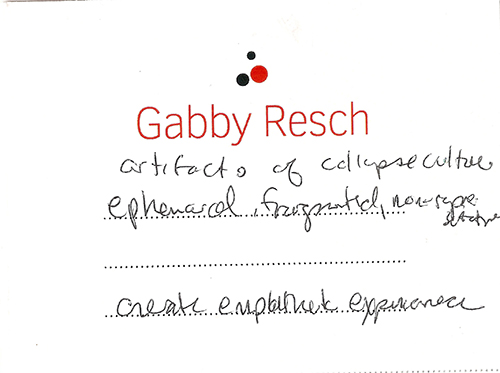 Gabby Resch
artifacts of collapse culture
ephemeral, fragmented, non-repre
sentative
create empathetic experiences